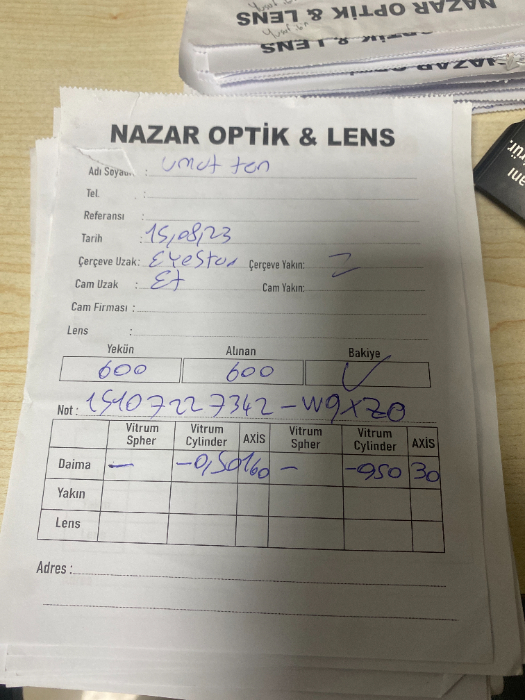 NAZAR OPTİK & LENS
NAZAR OPTİK & LENS
Adı Soyadı : umut ten
Tel. :
Referansı :
Tarih : 15,08,23
Çerçeve Uzak: Çerçeve Yakın:
Cam Uzak : Cam Yakın:
Cam Firması :
Lens :
Yekün Alınan Bakiye
600 600 ✓
Not : 15107227342-W9XZ0
Vitrum Spher Vitrum Cylinder AXİS Vitrum Spher Vitrum Cylinder AXİS
Daima — -0,50 160 — -0,50 30
Yakın
Lens
Adres :